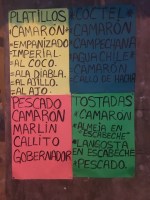 PLATILLOS
*CAMARÓN
*EMPANIZADO
IMPERIAL
AL COCO.
ALA DIABLA.
AL AJILLO.
*AL AJO
*COCTEL
CAMARON
CAMPECHANA
AGUACHILE
CAMARON
CALLO DE HACHA
PESCADO
CAMARÓN
MARLÍN
CALLITO
GOBERNADOR
TOSTADAS
*CAMARON
*ALMEJA EN
"ESCABECHE"
*LANGOSTA
EN ESCABECHE
*PESCADO